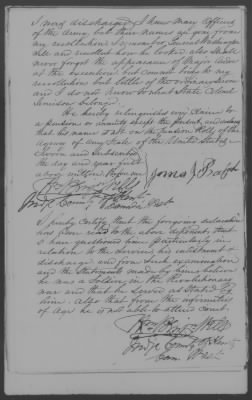 I was discharged. I knew many officers
of the Army, but their names are gone from
my recollection. I remember General Washington
well and recollect how he looked also I shall
never forget the appearance of Major Andre
at his execution but cannot bring to my
recollection but little of the
and I do not know to what State Colonel
Jemison belonged.
He hereby relinquishes every claim to
a pension or annuity except the present, and declares
that his name is not on the Pension Roll of the
Agency of any State of the United States
Sworn and Subscribed
the day and year first
above written Before me
James Ralph
Judge County of
I hereby Certify, that the foregoing declaration
has been read to the above deponent, that
I have questioned him particularly in
relation to the service, his enlistment &
discharge and from such examination
and the Statements made by him, believe
he was a Soldier in the Revolutionary
war and that he served as Stated by
him. Also that from the infirmities
of Age he is not able to attend court.
Judge County of